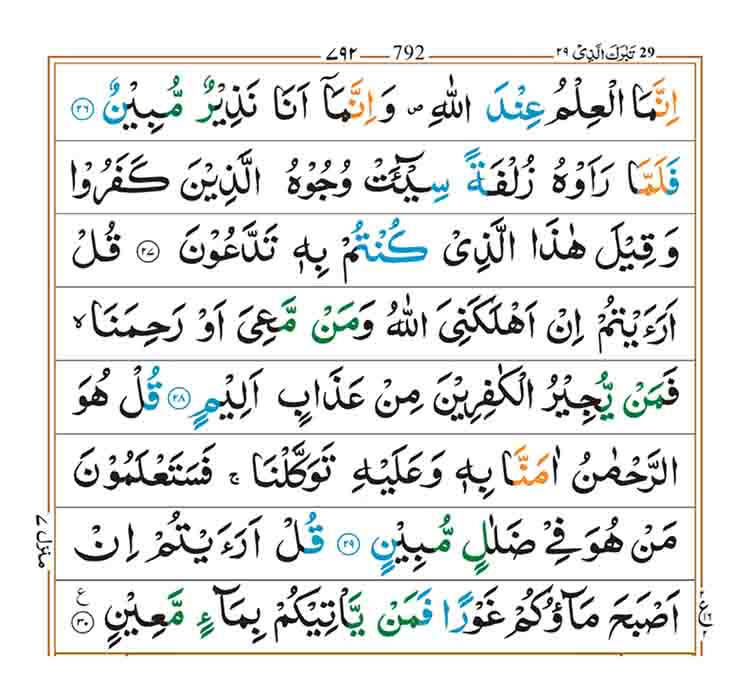 29 تَبٰرَكَ الَّذِىْ ٢٩ — 792 — ٧٩٢
اِنَّمَا الْعِلْمُ عِنْدَ اللّٰهِ ۖ وَاِنَّمَاۤ اَنَا نَذِيْرٌ مُّبِيْنٌ ۝٢٦
فَلَمَّا رَاَوْهُ زُلْفَةً سِيْٓئَتْ وُجُوْهُ الَّذِيْنَ كَفَرُوْا
وَقِيْلَ هٰذَا الَّذِىْ كُنْتُمْ بِهٖ تَدَّعُوْنَ ۝٢٧ قُلْ
اَرَءَيْتُمْ اِنْ اَهْلَكَنِىَ اللّٰهُ وَمَنْ مَّعِىَ اَوْ رَحِمَنَا ۙ
فَمَنْ يُّجِيْرُ الْكٰفِرِيْنَ مِنْ عَذَابٍ اَلِيْمٍ ۝٢٨ قُلْ هُوَ
الرَّحْمٰنُ اٰمَنَّا بِهٖ وَعَلَيْهِ تَوَكَّلْنَا ۚ فَسَتَعْلَمُوْنَ
مَنْ هُوَ فِىْ ضَلٰلٍ مُّبِيْنٍ ۝٢٩ قُلْ اَرَءَيْتُمْ اِنْ
اَصْبَحَ مَآؤُكُمْ غَوْرًا فَمَنْ يَّاْتِيْكُمْ بِمَآءٍ مَّعِيْنٍ ۝٣٠ ع
منزل ٧